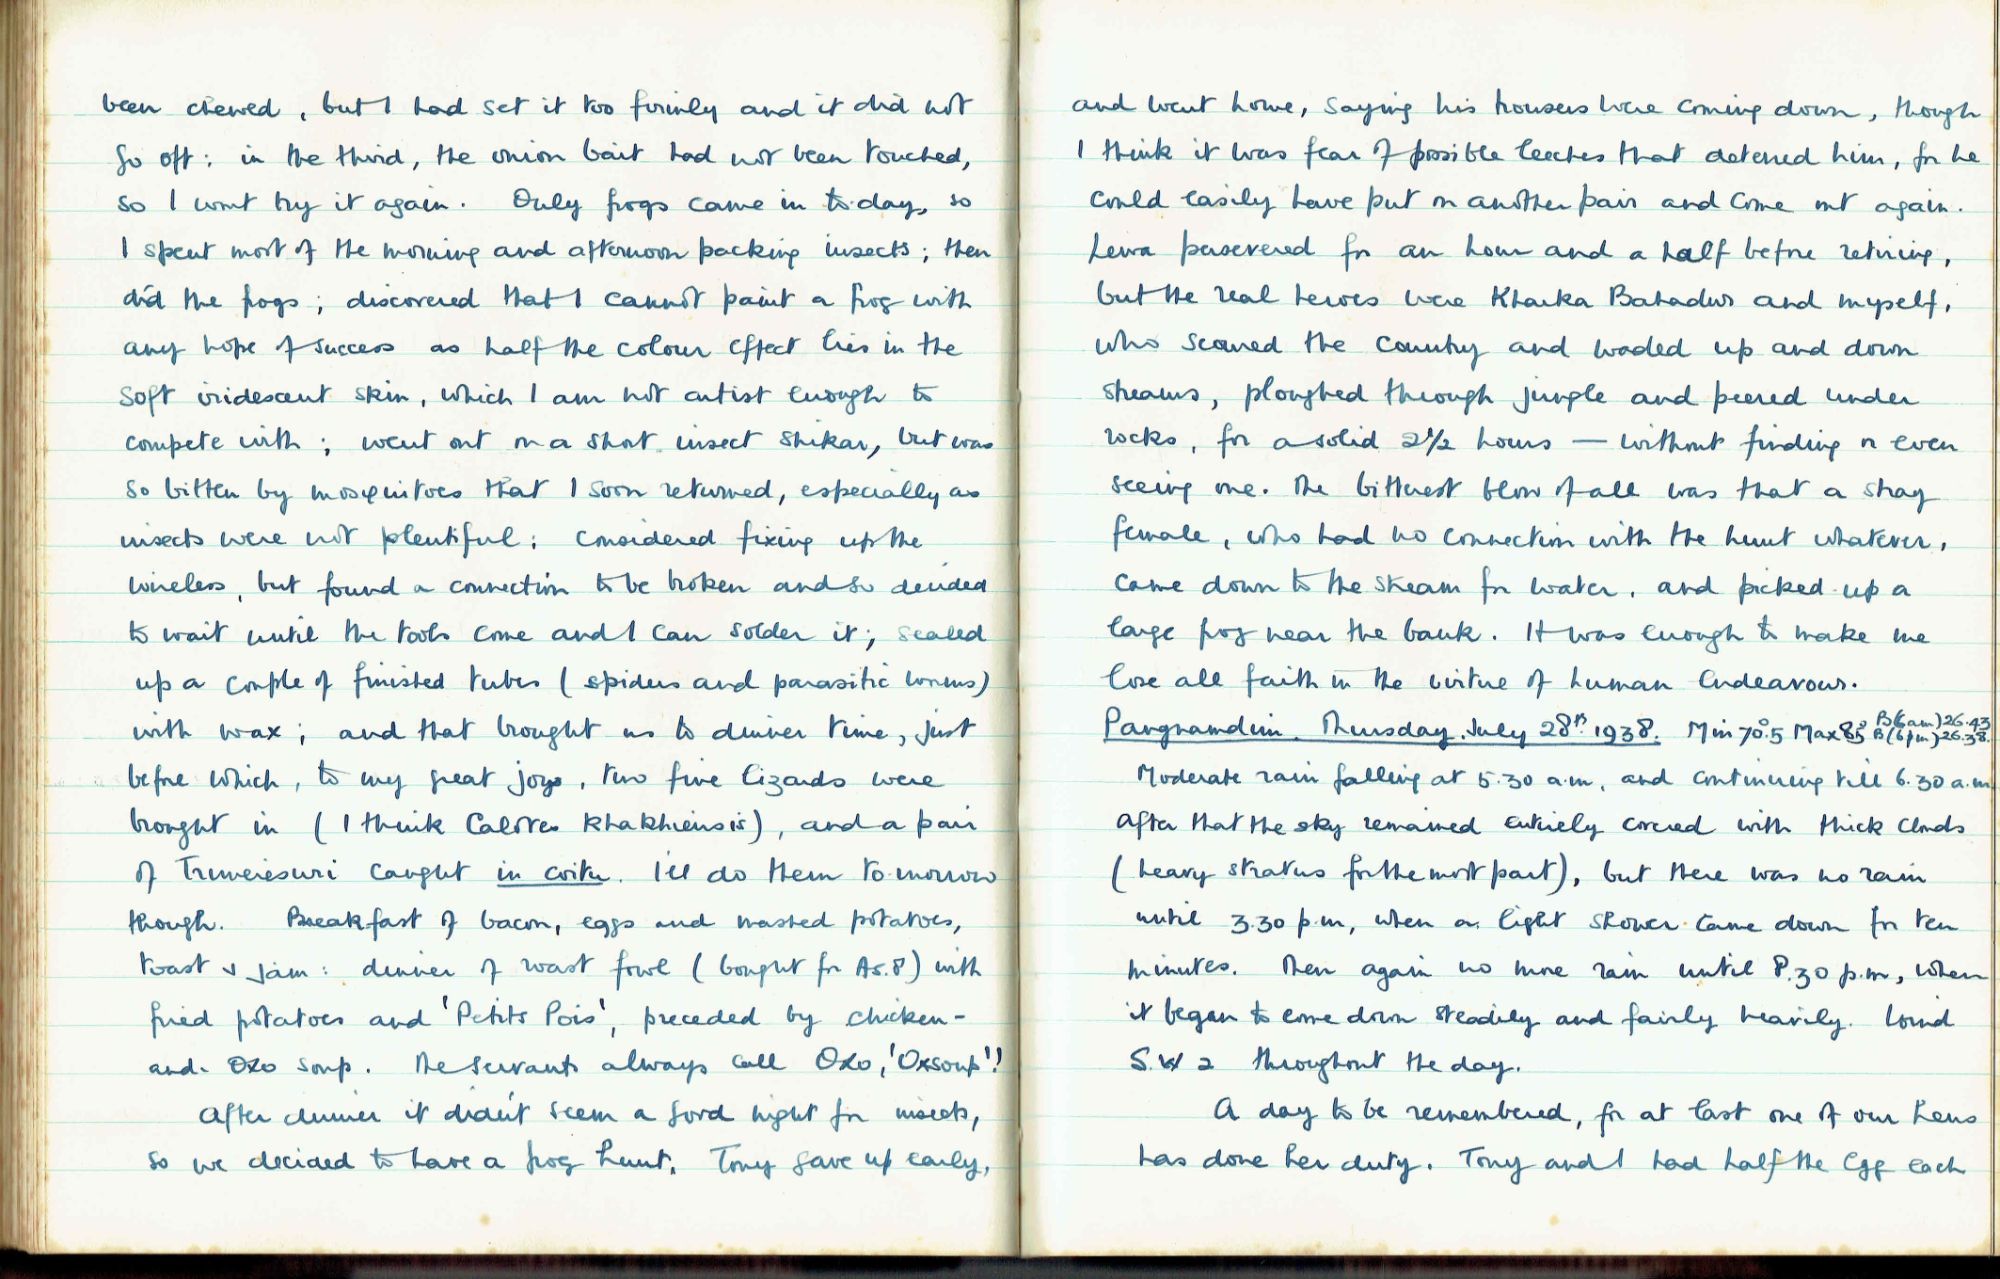 been chewed, but I had set it too firmly and it did not
go off; in the third, the onion bait had not been touched,
so I wont try it again. Only frogs came in to-day, so
I spent most of the morning and afternoon packing insects; then
did the frogs; discovered that I cannot paint a frog with
any hope of success as half the colour effect lies in the
soft iridescent skin, which I am not artist enough to
compete with; went out on a short insect shikar, but was
so bitten by mosquitoes that I soon returned, especially as
insects were not plentiful; considered fixing up the
wireless, but found a connection to be broken and so decided
to wait until the tools come and I can solder it; sealed
up a couple of finished tubes (spiders and parasitic worms)
with wax; and that brought us to dinner time, just
before which, to my great joy, two fine lizards were
brought in (I think Calotes khakhiensis), and a pair
of Trimeresuri caught in coitu. I'll do them to-morrow
though. Breakfast of bacon, eggs and mashed potatoes,
toast & jam: dinner of roast fowl (bought for As.8) with
fried potatoes and 'Petits Pois', preceded by chicken-
and-Oxo soup. The servants always call Oxo, 'Oxsoup'!
After dinner it didn't seem a good night for insects,
so we decided to have a frog hunt. Tony gave up early,
and went home, saying his trousers were coming down, though
I think it was fear of possible leeches that deterred him, for he
could easily have put on another pair and come out again.
Lewa persevered for an hour and a half before retiring,
but the real heroes were Kharka Bahadur and myself,
who scoured the country and waded up and down
streams, ploughed through jungle and peered under
rocks, for a solid 2½ hours — without finding or even
seeing one. The bitterest blow of all was that a stray
female, who had no connection with the hunt whatever,
came down to the stream for water, and picked up a
large frog near the bank. It was enough to make me
lose all faith in the virtue of human endeavour.
Pangnamdim. Thursday. July 28th 1938. Min 70°.5 Max 85° B(6am) 26.43 B(6pm) 26.38.
Moderate rain falling at 5.30 a.m. and continuing till 6.30 a.m.
After that the sky remained entirely covered with thick clouds
(heavy stratus for the most part), but there was no rain
until 3.30 p.m, when a light shower came down for ten
minutes. Then again no more rain until 8.30 p.m, when
it began to come down steadily and fairly heavily. Wind
S.W 2 throughout the day.
A day to be remembered, for at last one of our hens
has done her duty. Tony and I had half the egg each